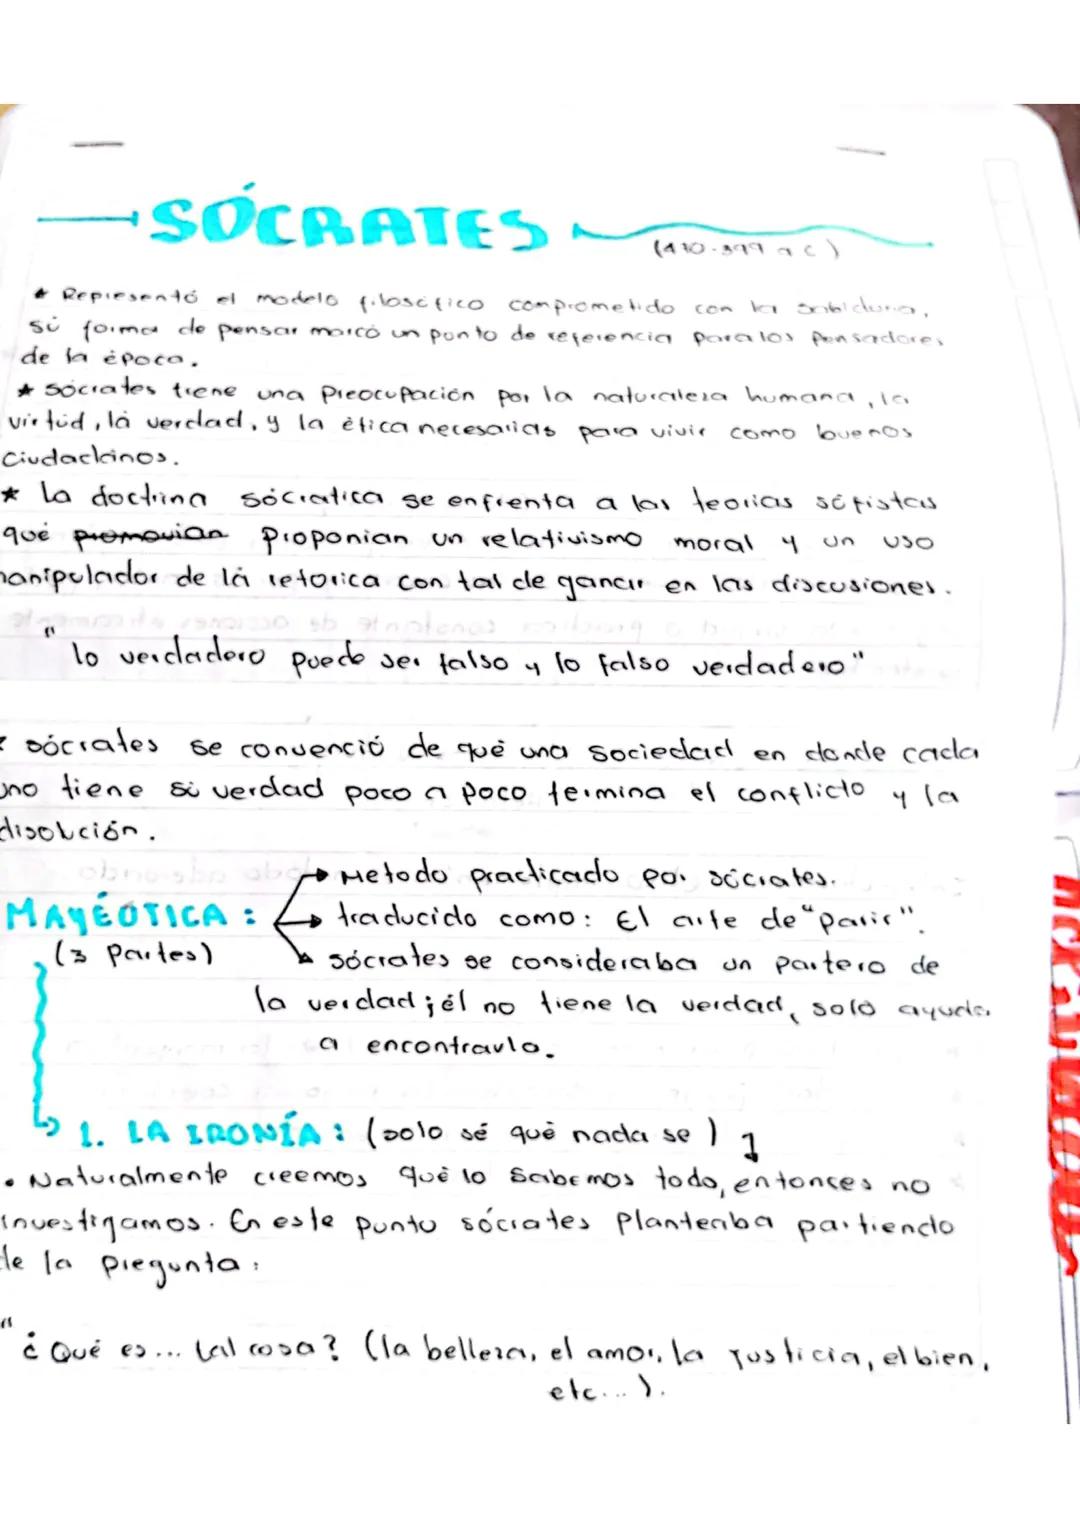 SÓCRATES
(410-399 a C)
* Representó el modelo filosófico comprometido con la sabiduria,
sú forma de pensar marcó un punto de referencia para los pensadores
de la época.
* Sócrates tiene una preocupación por la naturaleza humana, la
virtúd, lá verdad, y la ética necesarias para vivir como buenos
ciudadanos.
* la doctrina sócratica se enfrenta a las teorias sofistas
qué promovian proponian un relativismo moral y un uso
manipulador de lá retorica con tal de ganar en las discusiones.
"lo verdadero puede ser falso y lo falso verdadero"
* sócrates se convenció de qué una sociedad en donde cada
uno tiene sú verdad poco a poco termina el conflicto y la
disolución.
→ Metodo practicado por sócrates.
MAYÉUTICA: → traducido como: El arte de "parir".
(3 Partes) → sócrates se consideraba un partero de
la verdad; él no tiene la verdad, solo ayuda
a encontrarla.
1. LA IRONÍA: (solo sé qué nada se)
• Naturalmente creemos qué lo sabemos todo, entonces no
investigamos. En este punto sócrates planteaba partiendo
de la pregunta:
"¿Qué es... tal cosa? (la belleza, el amor, la justicia, el bien,
etc...).